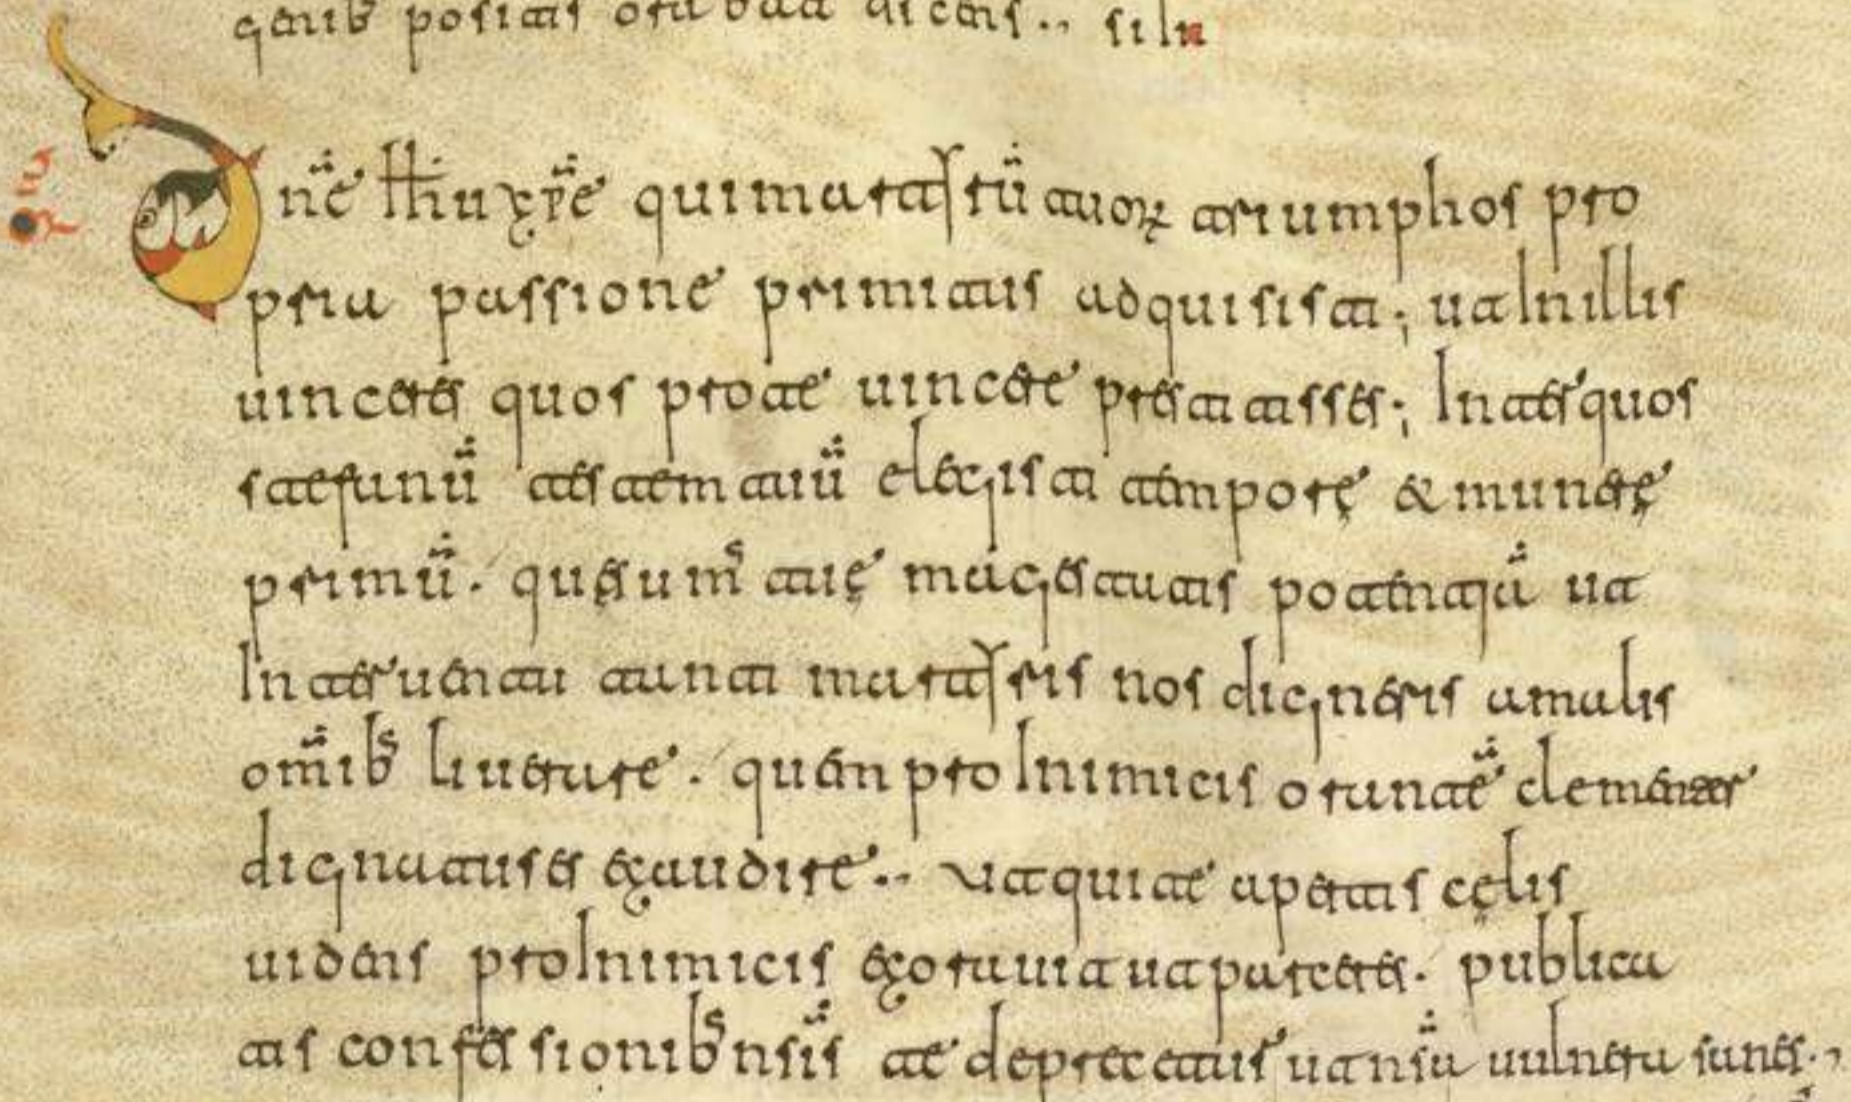 genib positis orabat dicens..
Dne Ihu xpe qui martyrū tuoꝝ triumphos pro
pria passione primitus adquisisti; ut In illis
uinceres quos pro te uincere prestitisses; Inter quos
stefanū testem tuū elegisti temporę & munerę
primū. quęsums tuę magestatis potentiā ut
Interuentu tanti martyris nos digneris a malis
om̄ibs liuerare. quem pro Inimicis orantē clementer
dignatus es exaudire.. Ut qui te apertis cęlis
uidens pro Inimicis exorauit ut parceres. publica
tis confessionibs nsīs te deprecatus ut nsā uulnera sanes..